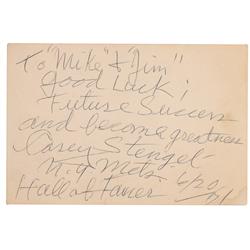 To "Mike" & "Jim"
Good Luck !
Future Success
and become greatness
Casey Stengel
N.Y Mets 6/20
Hall of Famer /71